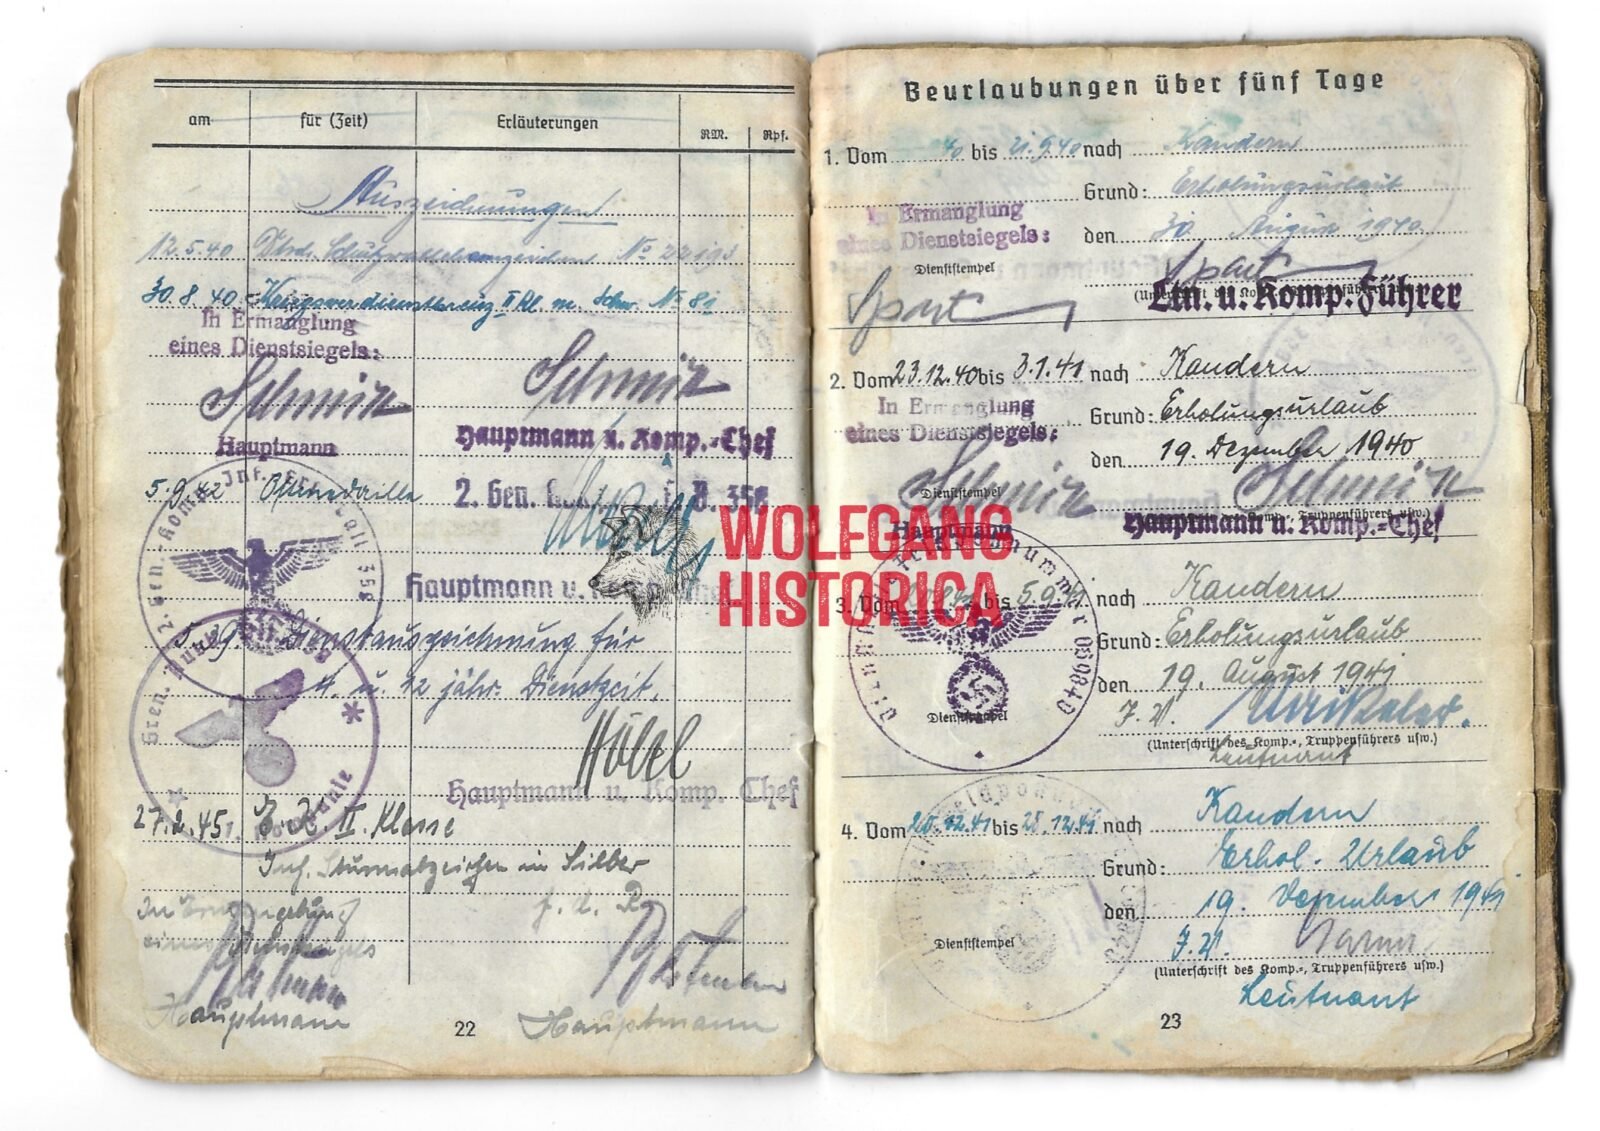 am für (Zeit) Erläuterungen RM. Rpf.
Auszeichnungen
12.5.40 No 22193
30.8.40 Kriegsverdienstkreuz II Kl. m. Schw. No 81
In Ermanglung
eines Dienstsiegels:
Schmitz Schmitz
Hauptmann Hauptmann u. Komp.-Chef
5.9.42 Ostmedaille 2. Gen. 358
Hauptmann u.
Dienstauszeichnung für
4. u. 12 jähr. Dienstzeit.
Hauptmann u. Komp. Chef
27.2.45 E.K. II. Klasse
Inf. Sturmabzeichen in Silber
f. d. R.
In Ermangelung
eines Dienstsiegels
Hauptmann Hauptmann
22
Beurlaubungen über fünf Tage
1. Vom 40 bis 21.9.40 nach Kandern
Grund: Erholungsurlaub
In Ermanglung
eines Dienstsiegels:
den 30. August 1940
Dienststempel
Spart Spart
Ltn. u. Komp. Führer
2. Vom 23.12.40 bis 3.1.41 nach Kandern
In Ermanglung
eines Dienstsiegels:
Grund: Erholungsurlaub
den 19. Dezember 1940
Dienststempel
Schmitz Schmitz
Hauptmann Hauptmann u. Komp.-Chef
3. Vom bis 5.9.41 nach Kandern
Grund: Erholungsurlaub
den 19. August 1941
Dienststempel
J.V.
(Unterschrift des Komp.-, Truppenführers usw.)
Leutnant
4. Vom 20.12.41 bis 28.12.41 nach Kandern
Grund: Erhol. Urlaub
den 19. Dezember 1941
Dienststempel
J.V.
(Unterschrift des Komp.-, Truppenführers usw.)
Leutnant
23
WOLFGANG
HISTORICA